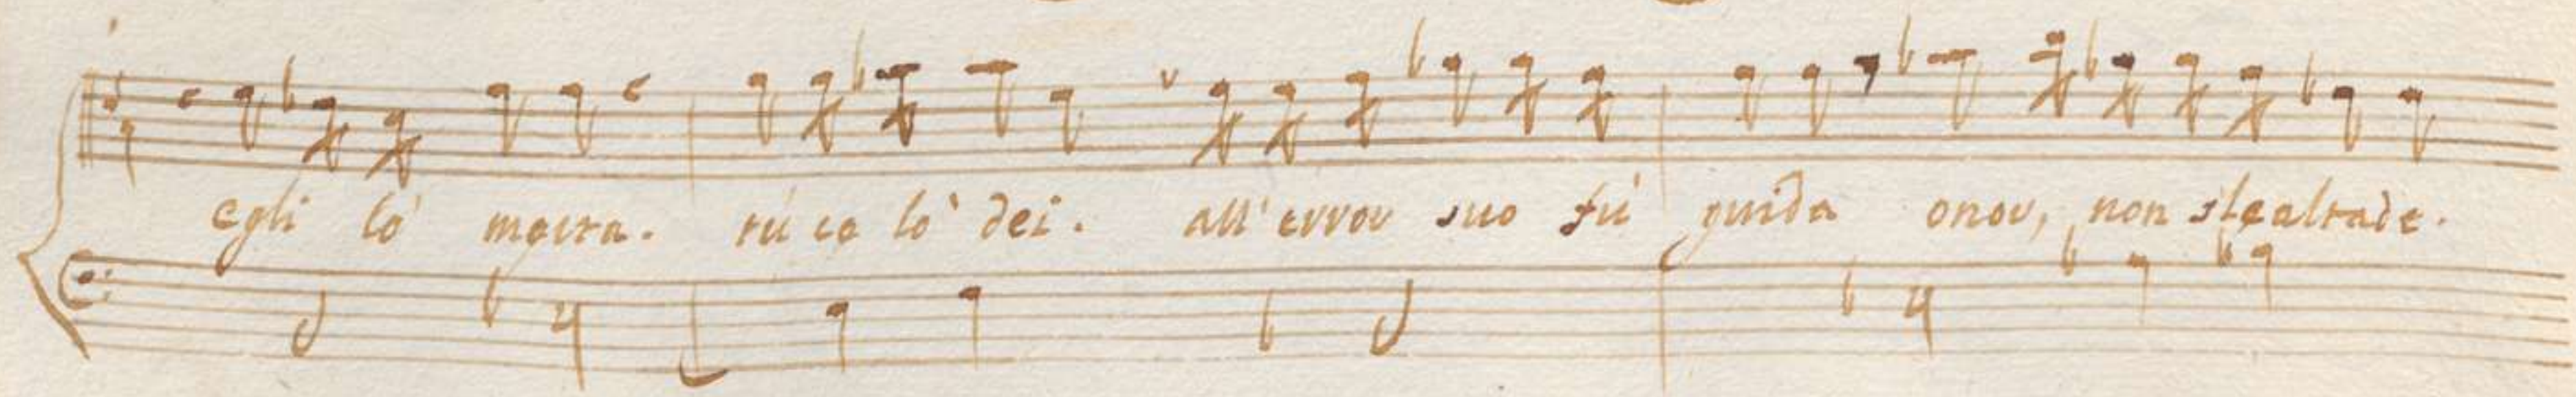 egli lo' mevta. tú ce lo' dei. all' error suo fú guida onor, non slealtade.